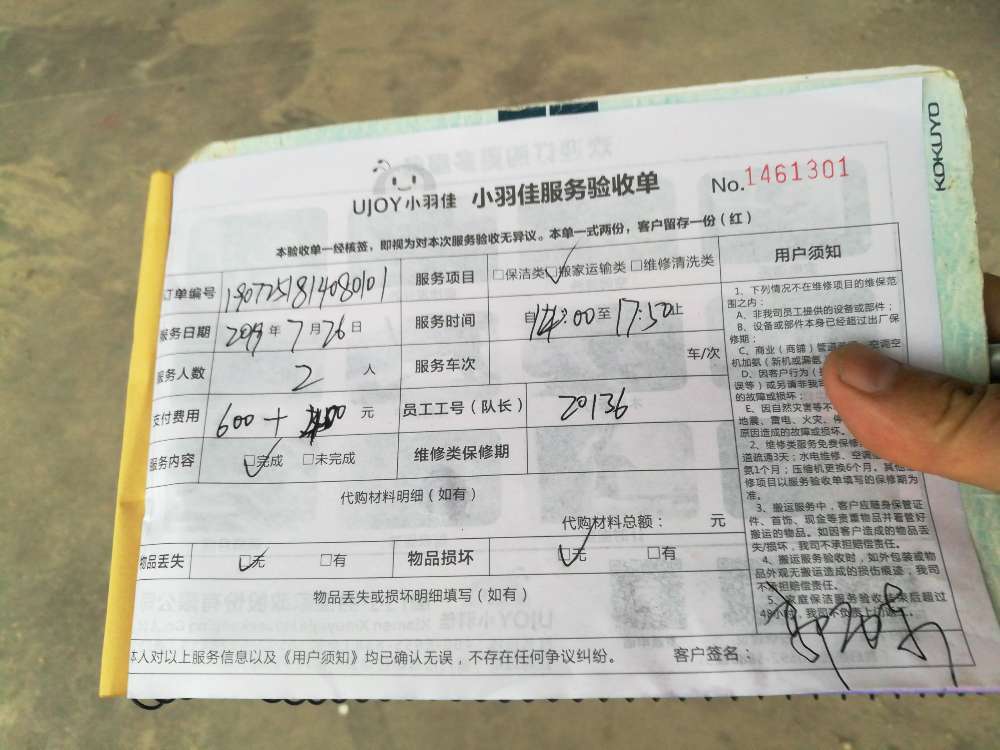 KOKUYO
UJOY小羽佳 小羽佳服务验收单 No.1461301
本验收单一经核签，即视为对本次服务验收无异议。本单一式两份，客户留存一份（红）
订单编号 1907251814080101 服务项目 □保洁类□搬家运输类□维修清洗类
服务日期 2019年7月26日 服务时间 自14:00至17:50止
服务人数 2人 服务车次 车/次
支付费用 600+ 元 员工工号（队长） 20136
服务内容 □完成 □未完成 维修类保修期
代购材料明细（如有）
代购材料总额： 元
物品丢失 □无 □有 物品损坏 □无 □有
物品丢失或损坏明细填写（如有）
本人对以上服务信息以及《用户须知》均已确认无误，不存在任何争议纠纷。 客户签名：
用户须知
1、下列情况不在维修项目的维保范
围之内：
A、非我司员工提供的设备或部件；
B、设备或部件本身已经超过出厂保
修期；
C、商业（商铺）管道 空调空
机加氨（新机或漏氨
D、因客户行为
误等）或另请非我司
的故障或损坏；
E、因自然灾害等不
地震、雷电、火灾、停
原因造成的故障或损坏。
2、维修类服务免费保修
道疏通3天；水电维修、空调
氨1个月；压缩机更换6个月。其他
修项目以服务验收单填写的保修期为
准。
3、搬运服务中，客户应随身保管证
件、首饰、现金等贵重物品并看管好
搬运的物品。如因客户造成的物品丢
失/损坏，我司不承担赔偿责任。
4、搬运服务验收时，如外包装或物
品外观无搬运造成的损伤痕迹，我司
不承担赔偿责任。
5、家庭保洁服务验收结束后超过
48小时，我司不负责上门返工。